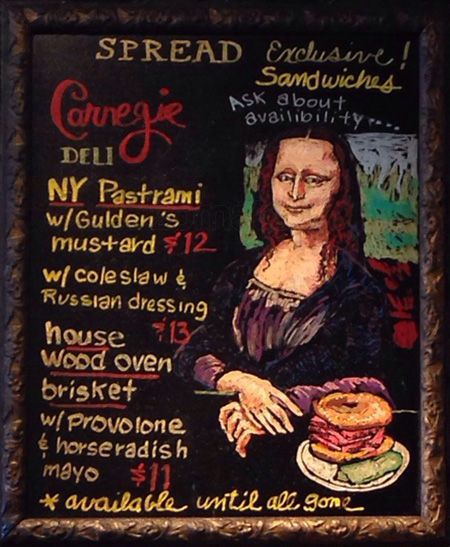 SPREAD Exclusive!
Sandwiches
Ask about
availibility....
Carnegie
DELI
NY Pastrami
w/Gulden's
mustard $12
w/ coleslaw &
Russian dressing
$13
house
wood oven
brisket
w/ Provolone
& horseradish
mayo $11
* available until all gone